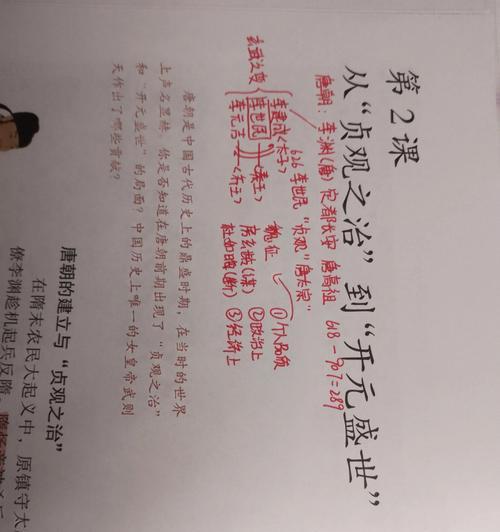 第2课
从“贞观之治”到“开元盛世”
唐朝：李渊(唐) 定都长安 唐高祖 618-907=289
李建成(太子)
玄武门之变 李世民 (秦王)
李元吉 (齐王)
626 李世民 “贞观” 唐太宗
魏征 ①个人品质
房玄龄(谋) ②政治上
杜如晦(断) ③经济上
唐朝是中国古代历史上的鼎盛时期，在当时的世界
上声名显赫。你是否知道在唐朝前期出现了“贞观之治”
和“开元盛世”的局面？中国历史上唯一的女皇帝武则
天作出了哪些贡献？
唐朝的建立与“贞观之治”
在隋末农民大起义中，原镇守太
僚李渊趁机起兵反隋。